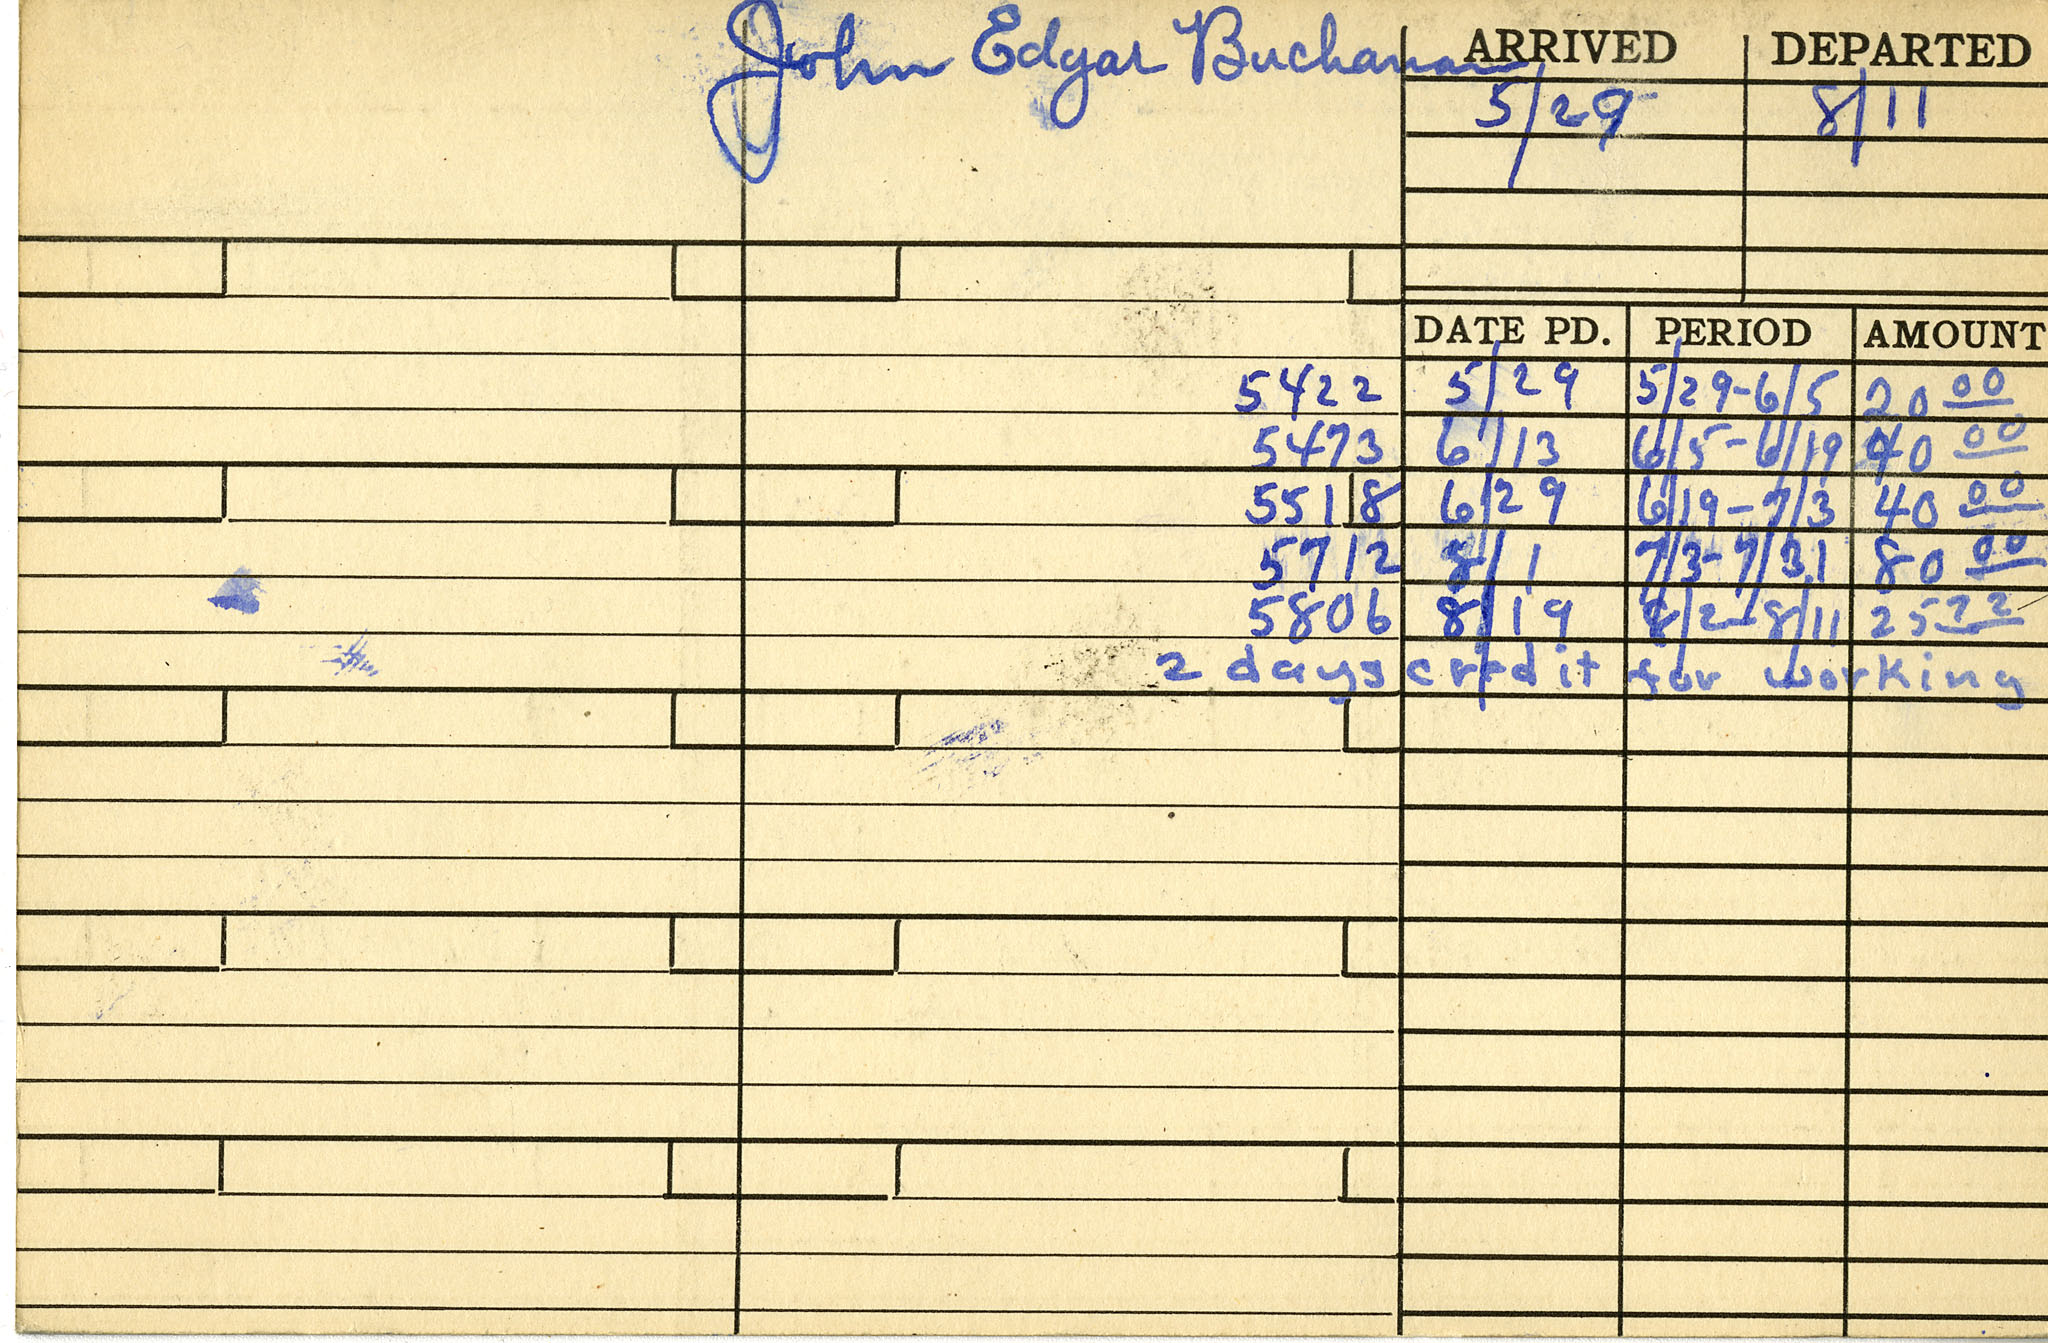 John Edgar Buchanan
ARRIVED DEPARTED
5/29 8/11
DATE PD. PERIOD AMOUNT
5422 5/29 5/29-6/5 20 00
5473 6/13 6/5-6/19 40 00
5518 6/29 6/19-7/3 40 00
5712 8/1 7/3-7/31 80 00
5806 8/19 8/2-8/11 25 22
2 days credit for working